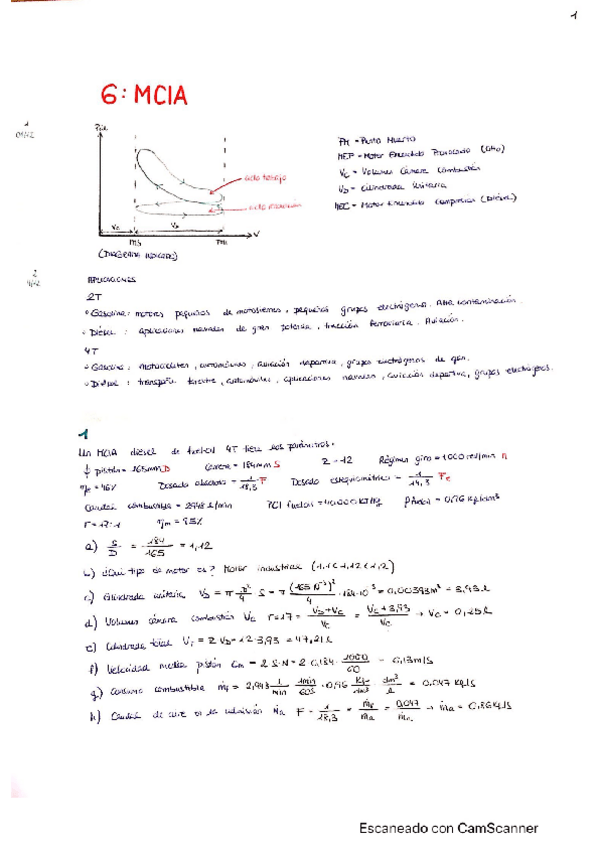 1
6: MCIA
1
PM = Punto Muerto
MEP = Motor Encendido Provocado (Otto)
Vc = Volumen Cámara Combustión
VD = Cilindrada Unitaria
MEC = Motor Encendido Compresión (Diésel)
ciclo trabajo
Vc VD V
PMS PMI
(DIAGRAMA INDICADO)
2
APLICACIONES
2T
· Gasolina: motores pequeños de , pequeños grupos electrógenos. Alta contaminación.
· Diésel : aplicaciones navales de gran potencia, tracción ferroviaria. Aviación.
4T
· Gasolina: motocicletas, automóviles, aviación deportiva, grupos electrógenos de gas.
· Diésel : transporte terrestre, automóviles, aplicaciones navales, aviación deportiva, grupos electrógenos.
1
Un MCIA diésel de fueloil 4T tiene los parámetros:
ϕ pistón = 165mm D Carrera = 184mm S Z = 12 Régimen giro = 1000 rev/min n
ηe = 46% Dosado absoluto = 1/18,3 F Dosado estequiométrico = 1/14,3 Fe
Caudal combustible = l/min PCI fueloil = kJ/kg ρfueloil = 0,96 kg/dm³
r = 17:1 ηm = %
a) S/D = 184/165 = 1,12
b) ¿Qué tipo de motor es? Motor industrial (1,1<1,12<1,2)
c) Cilindrada unitaria VD = π D²/4 S = π (165·10⁻³)²/4 · 184·10⁻³ = 0,00393m³ = 3,93 l
d) Volumen cámara combustión Vc r=17 = VD+Vc/Vc = Vc+3,93/Vc → Vc = 0,25 l
e) Cilindrada total VT = Z VD = 12·3,93 = 47,21 l
f) Velocidad media pistón Cm = 2·S·N = 2·0,184· 1000/60 = 6,13 m/s
g) Consumo combustible ṁf = 2,943 l/min · 1min/60s · 0,96 kg/dm³ · dm³/l = 0,047 kg/s
h) Caudal de aire en la admisión ṁa F = 1/18,3 = ṁf/ṁa = 0,047/ṁa → ṁa = 0,86 kg/s
Escaneado con CamScanner